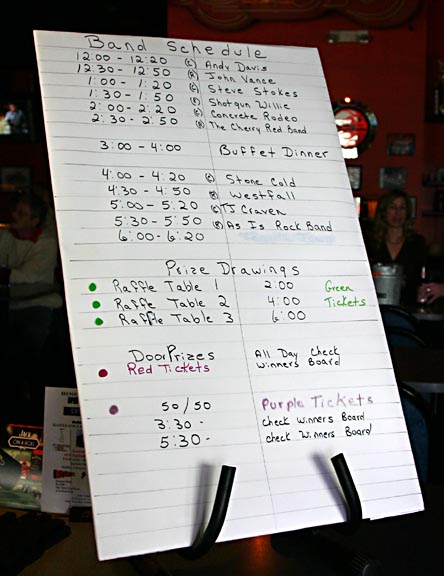 Band Schedule
12:00 - 12:20 (C) Andy Davis
12:30 - 12:50 (R) John Vance
1:00 - 1:20 (C) Steve Stokes
1:30 - 1:50 (B) Shotgun Willie
2:00 - 2:20 (C) Concrete Rodeo
2:30 - 2:50 (B) The Cherry Red Band
3:00 - 4:00 Buffet Dinner
4:00 - 4:20 (C) Stone Cold
4:30 - 4:50 (B) Westfall
5:00 - 5:20 (C) TJ Craven
5:30 - 5:50 (B) As Is Rock Band
6:00 - 6:20
Prize Drawings
Raffle Table 1 2:00 Green
Raffle Table 2 4:00 Tickets
Raffle Table 3 6:00
Door Prizes All Day Check
Red Tickets Winners Board
50/50 Purple Tickets
3:30 - check Winners Board
5:30 - check Winners Board